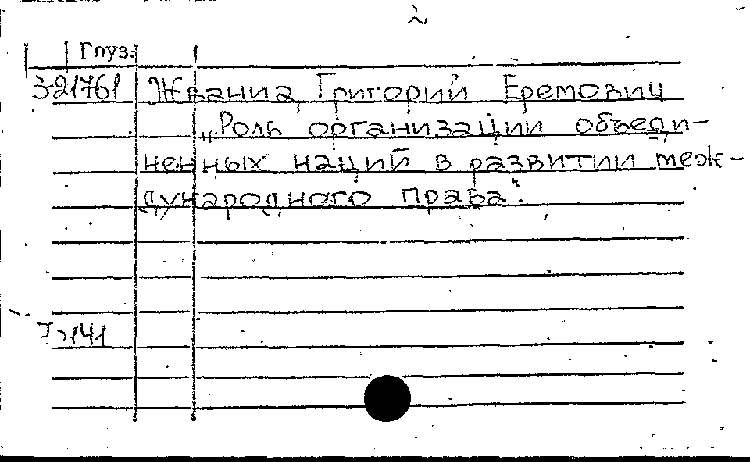 2
Груз.
3-21761 Жвания, Григорий Еремович
„Роль организации объеди-
ненных наций в развитии меж-
дународного права".